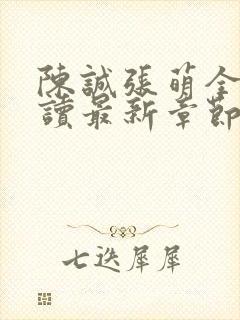 陳誠張萌全
讀最新章節
七迭犀犀